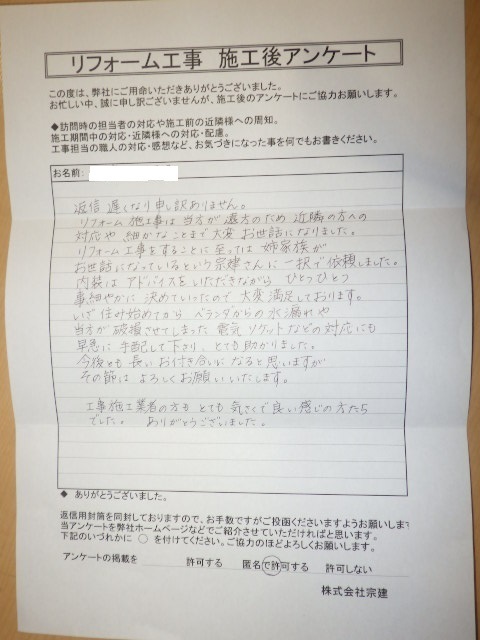 リフォーム工事　施工後アンケート
この度は、弊社にご用命いただきありがとうございました。
お忙しい中、誠に申し訳ございませんが、施工後のアンケートにご協力お願いします。
◆訪問時の担当者の対応や施工前の近隣様への周知。
施工期間中の対応・近隣様への対応・配慮。
工事担当の職人の対応・感想など、お気づきになった事を何でもお書きください。
お名前:
返信 遅くなり申し訳ありません。
リフォーム施工事は当方が遠方のため 近隣の方への
対応や 細かなことまで大変 お世話になりました。
リフォーム工事をすることに至っては 姉家族が
お世話になっているという宗建さんに一択で依頼しました。
内装は アドバイスをいただきながら ひとつひとつ
事細やかに 決めていったので 大変満足しております。
いざ 住み始めてから ベランダからの水漏れや
当方が破損させてしまった 電気ソケットなどの対応にも
早急に 手配して下さり、とても助かりました。
今後とも 長いお付き合いに なると思いますが
その節は よろしくお願いいたします。
工事施工業者の方も とても 気さくで良い感じの方たち
でした。 ありがとうございました。
◆ ありがとうございました。
返信用封筒を同封しておりますので、お手数ですがご投函くださいますようお願いします
当アンケートを弊社ホームページなどでご紹介させていただければと思います。
下記のいづれかに ○ を付けてください。ご協力のほどよろしくお願いします。
アンケートの掲載を　許可する　匿名で許可する　許可しない
株式会社宗建